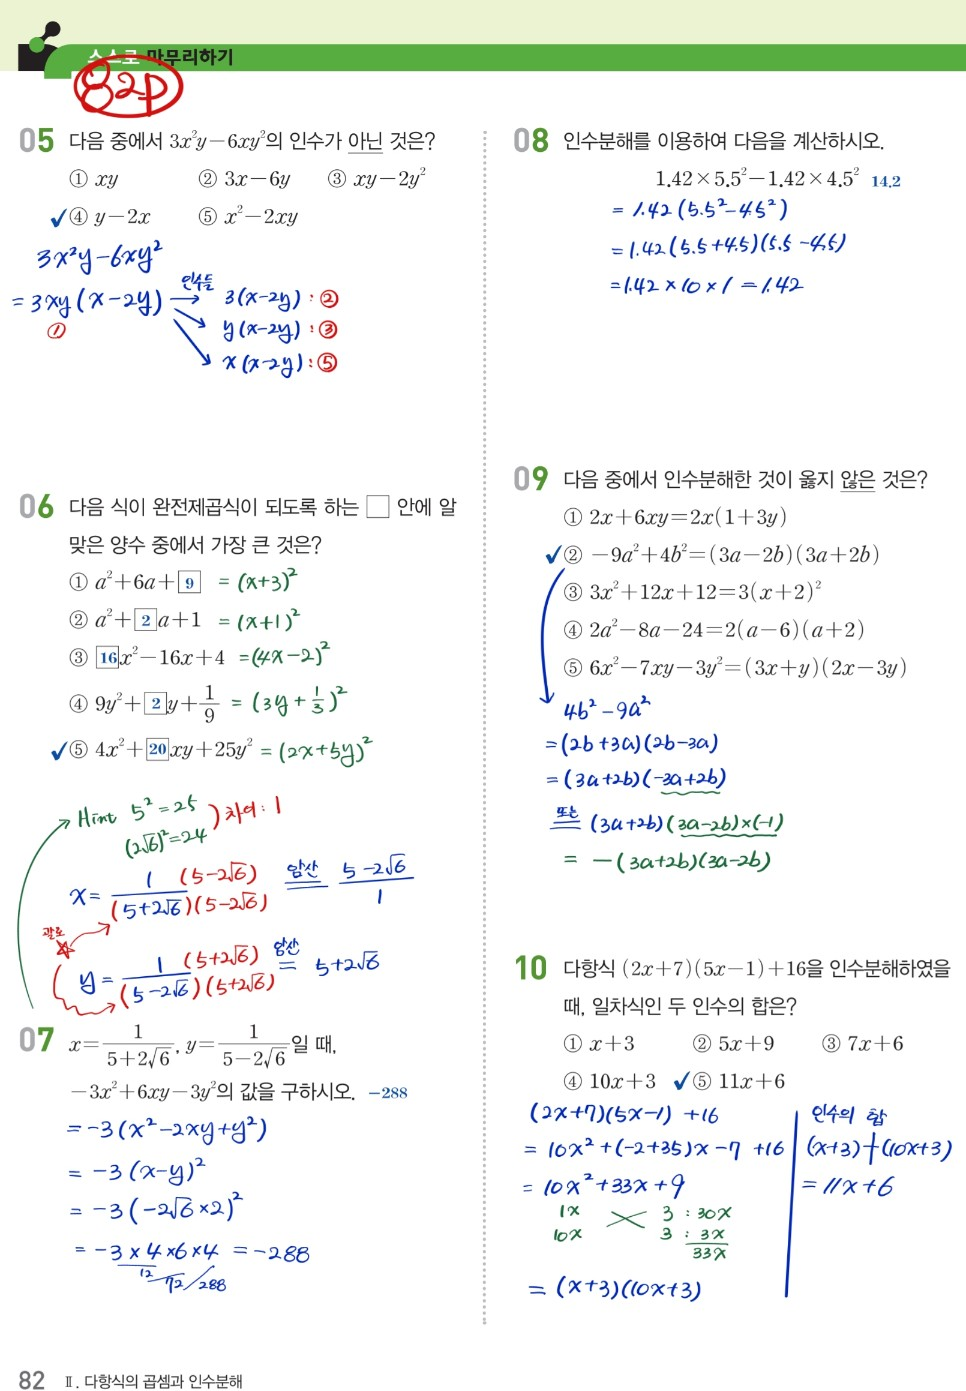 스스로 마무리하기
82p
05 다음 중에서 3x²y-6xy²의 인수가 아닌 것은?
① xy ② 3x-6y ③ xy-2y²
✓④ y-2x ⑤ x²-2xy
3x²y-6xy²
=3xy(x-2y) → 인수들 3(x-2y) : ②
① y(x-2y) : ③
x(x-2y) : ⑤
06 다음 식이 완전제곱식이 되도록 하는 □ 안에 알
맞은 양수 중에서 가장 큰 것은?
① a²+6a+9 = (x+3)²
② a²+2a+1 = (x+1)²
③ 16x²-16x+4 =(4x-2)²
④ 9y²+2y+1/9 = (3y+1/3)²
✓⑤ 4x²+20xy+25y² = (2x+5y)²
Hint 5²=25
(2√6)²=24 ) 차이: 1
x= 1 (5-2√6) / (5+2√6)(5-2√6) 암산 = 5-2√6 / 1
괄호
y= 1 (5+2√6) / (5-2√6)(5+2√6) 암산 = 5+2√6
07 x=1/(5+2√6), y=1/(5-2√6)일 때,
-3x²+6xy-3y²의 값을 구하시오. -288
=-3(x²-2xy+y²)
= -3(x-y)²
= -3(-2√6×2)²
= -3×4×6×4 =-288
12 72 288
08 인수분해를 이용하여 다음을 계산하시오.
1.42×5.5²-1.42×4.5² 14.2
= 1.42(5.5²-4.5²)
=1.42(5.5+4.5)(5.5-4.5)
=1.42×10×1=1.42
09 다음 중에서 인수분해한 것이 옳지 않은 것은?
① 2x+6xy=2x(1+3y)
✓② -9a²+4b²=(3a-2b)(3a+2b)
③ 3x²+12x+12=3(x+2)²
④ 2a²-8a-24=2(a-6)(a+2)
⑤ 6x²-7xy-3y²=(3x+y)(2x-3y)
4b²-9a²
=(2b+3a)(2b-3a)
=(3a+2b)(-3a+2b)
또는 = (3a+2b)(3a-2b)×(-1)
= -(3a+2b)(3a-2b)
10 다항식 (2x+7)(5x-1)+16을 인수분해하였을
때, 일차식인 두 인수의 합은?
① x+3 ② 5x+9 ③ 7x+6
④ 10x+3 ✓⑤ 11x+6
(2x+7)(5x-1)+16
= 10x²+(-2+35)x-7+16
= 10x²+33x+9
1x 3 : 30x
10x 3 : 3x
33x
= (x+3)(10x+3)
인수의 합
(x+3)+(10x+3)
= 11x+6
82 Ⅱ. 다항식의 곱셈과 인수분해